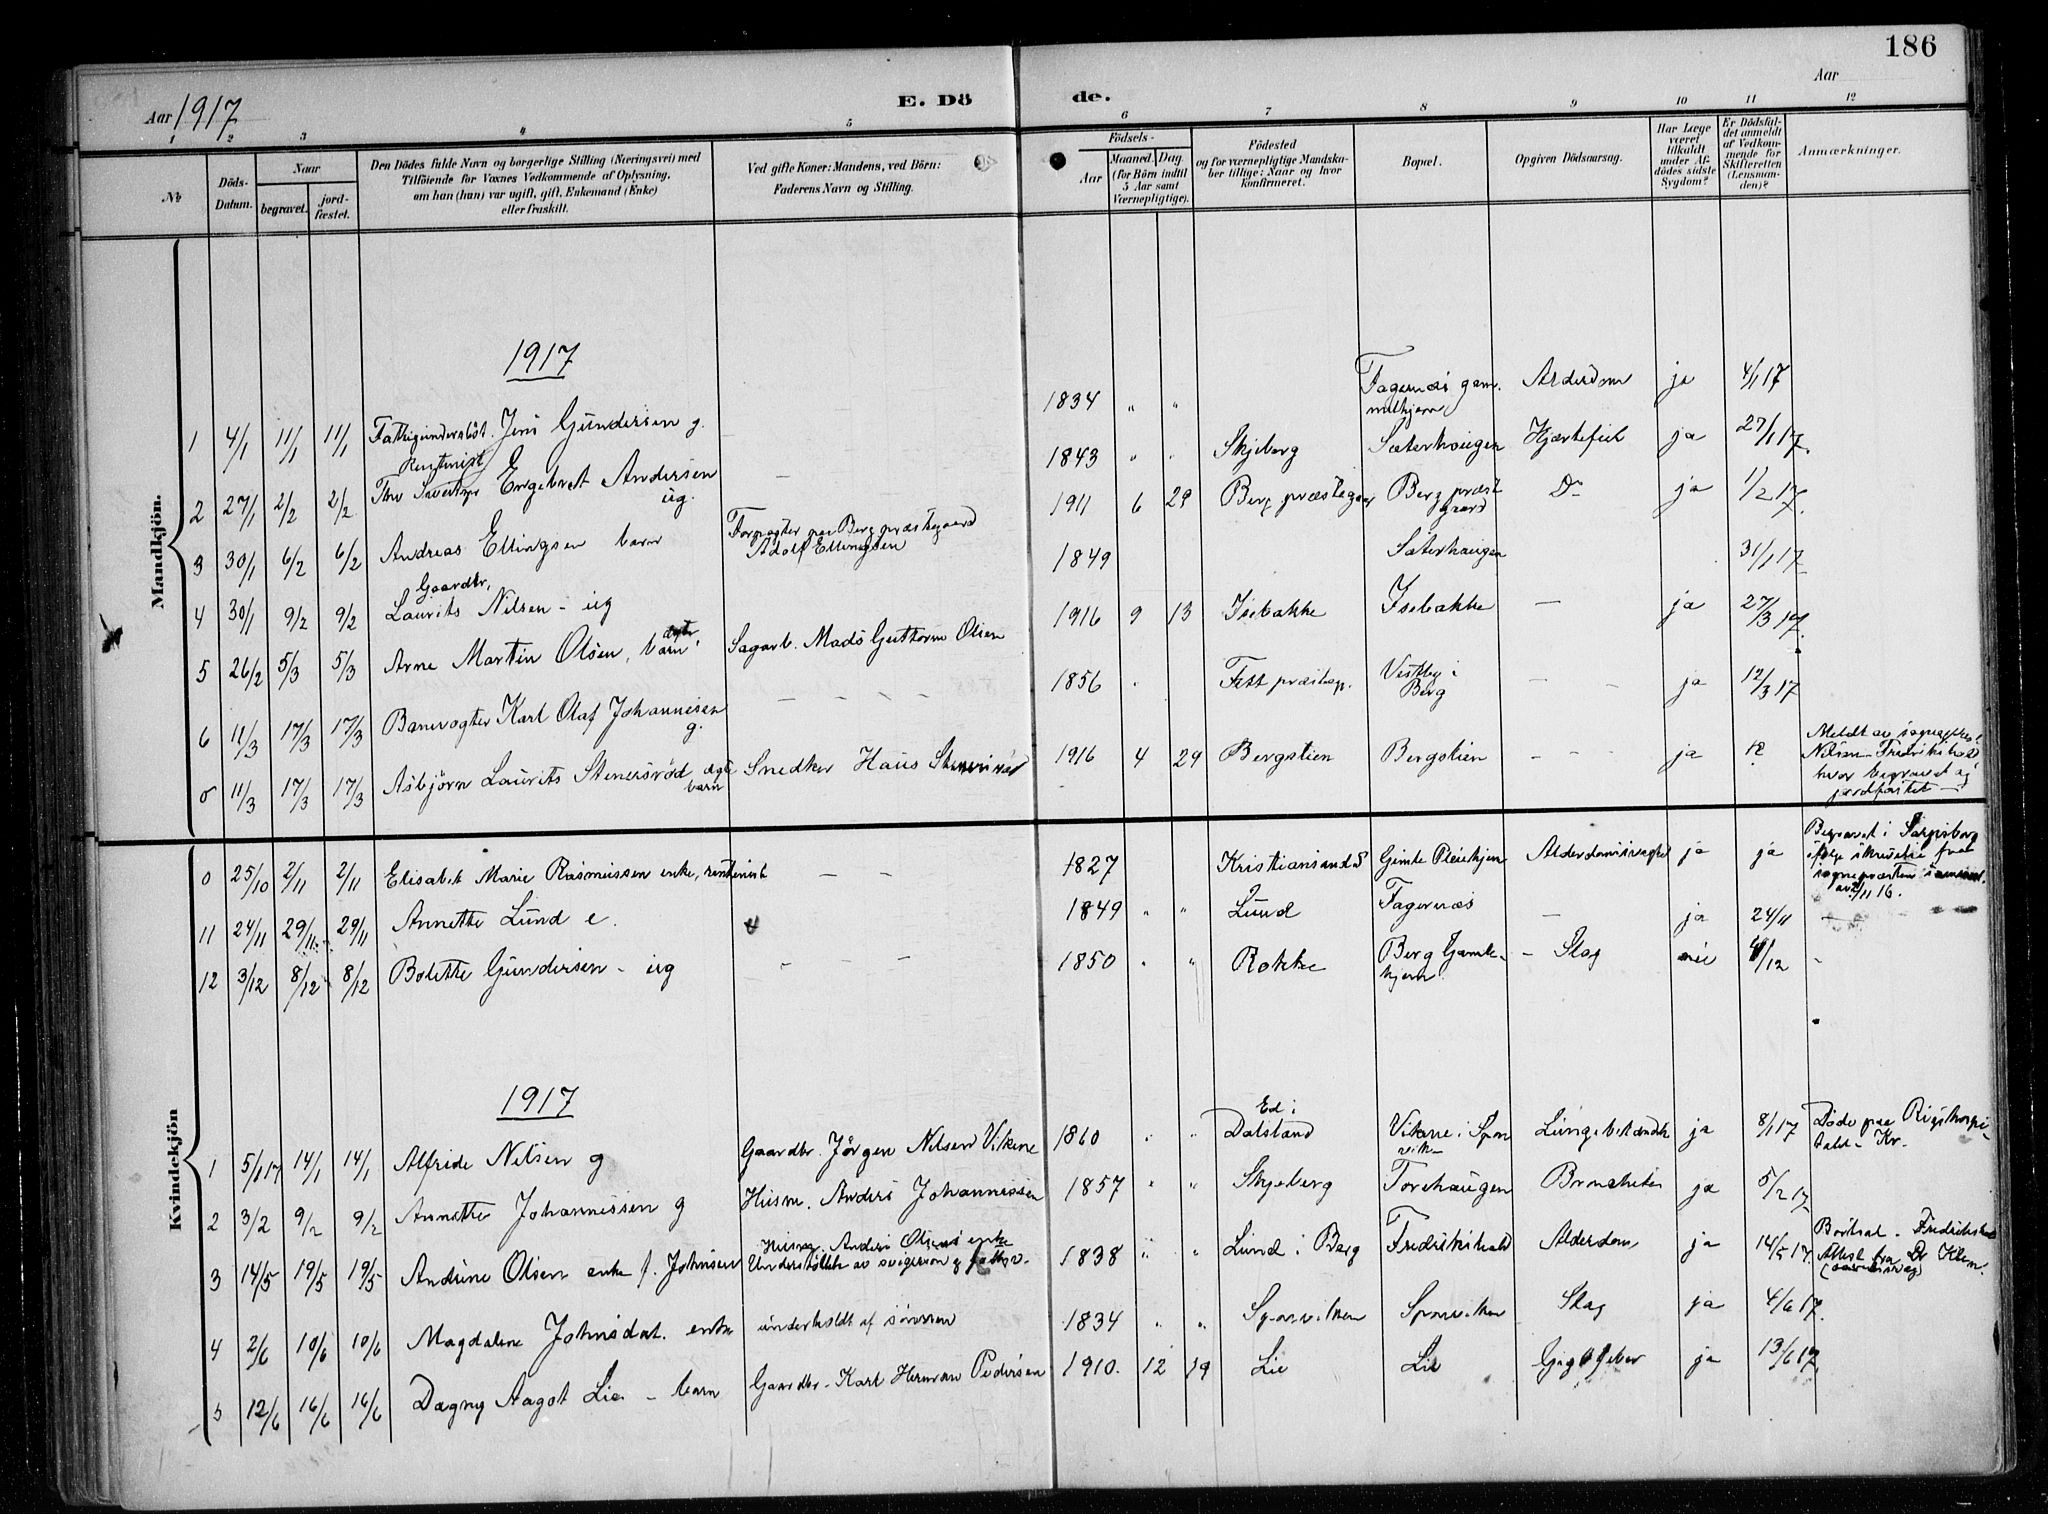 186
Aar 1917
E. Dö
de.
Aar
1 2 3 4 5 6 7 8 9 10 11 12
No
Döds-Datum.
Naar
begravet.
jord-fæstet.
Den Dödes fulde Navn og borgerlige Stilling (Næringsvei) med
Tilföiende for Voxnes Vedkommende af Oplysning,
om han (hun) var ugift, gift, Enkemand (Enke)
eller fraskilt.
Ved gifte Koner: Mandens, ved Börn:
Faderens Navn og Stilling.
Födsels-
Aar
Maaned. Dag
(for Börn indtil
5 Aar samt
Værnepligtige).
Födested
og for værnepligtige Mandska-
ber tillige: Naar og hvor
konfirmeret.
Bopæl.
Opgiven Dödsaarsag.
Har Læge
været
tilkaldt
under Af-
dödes sidste
Sygdom?
Er Dödsfal-
det anmeldt
af Vedkom-
mende for
Skifteretten
(Lensman-
den)?
Anmærkninger.
Mandkjön.
1917
1 4/1 11/1 11/1 Fattigunderstöt. Jens Gundersen g. — 1834 " " Fagernæs gam-melhjem Alderdom ja 4/1 17
2 27/1 2/2 2/2 Rentenist Engebret Andersen ug. — 1843 " " Skjeberg Sæterhaugen Hjertefeil ja 27/1 17.
3 30/1 6/2 6/2 Andreas Ellingsen barn Forpagter paa Berg præstegaard Adolf Ellingsen 1911 6 29 Berg præstegaar Berg præstgaard Do ja 1/2 17.
4 30/1 9/2 9/2 Gaardbr. Laurits Nilsen - ug 1849 Sæterhaugen 31/1 17
5 26/2 5/3 5/3 Arne Martin Olsen, ægte barn. Sagarb. Mads Guttorm Olsen 1916 9 13 Isebakke Isebakke — ja 27/3 17.
6 11/3 17/3 17/3 Banevogter Karl Olaf Johannesen g. — — — — 1856 " Fett præstep. Vestby i Berg — — ja 12/3 17
0 11/3 17/3 17/3 Asbjörn Laurits Stenersröd ægte barn Snedker Hans Stenersröd 1916 4 29 Bergstien Bergstien — — ja
Nilsen Fredrikshald
hvor begravet og
jordfæstet —
0 25/10 2/11 2/11 Elisabet Marie Rasmussen enke, rentenist — — 1827 Kristiansund S Gimle Pleiehjem Alderdomssvaghet ja ja
Begravet i Sarpsborg
ifølge skrivelse fra
sognepræsten
av 2/11 16.
11 24/11 29/11 29/11 Annette Lund e. 1849 " " Lund Fagernæs — ja 24/11
12 3/12 8/12 8/12 Bolette Gundersen - ug — — — 1850 " " Rokke Berg Gamle-hjem — Slag nei 4/12 -
Kvindekjön
1917
1 5/1 17 14/1 14/1 Alfride Nilsen g Gaardbr. Jörgen Nilsen Vikene 1860 " " Ed i Dalsland Vikene i Spon-viken Lungebetændelse ja 8/1 17 Döde paa Rigshospi-talet - Kr.
2 3/2 9/2 9/2 Annette Johannessen g Husm. Anders Johannessen 1857 " " Skjeberg Torehaugen Bronchitis ja 5/2 17
3 14/5 19/5 19/5 Andrine Olsen enke f. Johnsen Husm. Anders Olsens enke Understöttet av svigersön 1838 " " Lund i Berg Fredrikshald Alderdom, ja 14/5 17. Bortsat - Fredrikshald Attest fra Dr Klem.
4 2/6 10/6 10/6 Magdalene Johnsdat. enke underholdt af sönnen 1834 " " Sponviken Sponviken Slag ja 4/6 17.
5 12/6 16/6 16/6 Dagny Aagot Lie - barn Gaardbr. Karl Herman Pedersen 1910. 12 19 Lie Lie Gigtfeber ja 13/6 17.